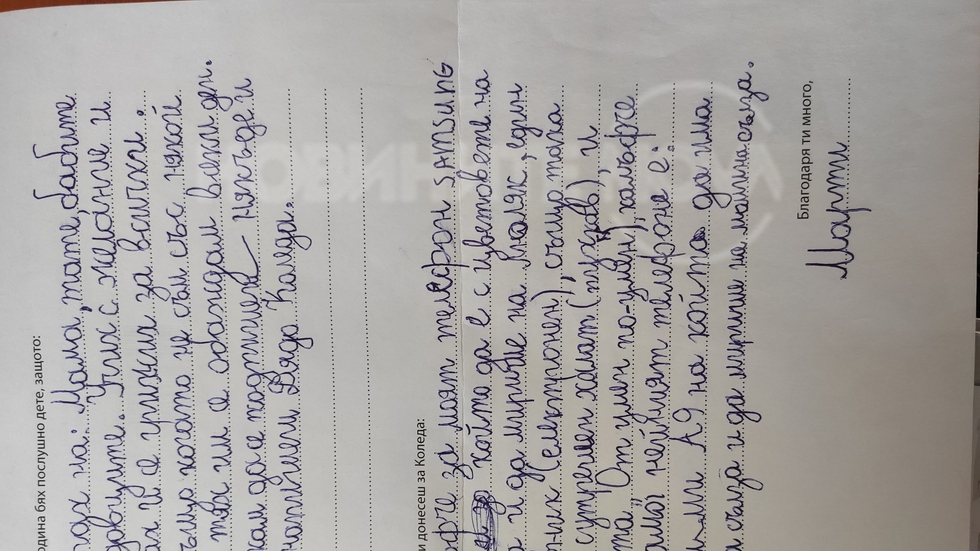 одина бях послушно дете, защото:
на: Мама, тате, бабите
довците. Учих с желание и
ах и се грижих за всички.
също когато не съм със някой
тях им се обаждам всеки ден.
кам да се подпишеш някъде и
напишеш Дядо Коледа.
и донесеш за Коледа:
фче за моят телефон SAMSUNG
който да е с цветовете на
а и да мирише на люляк, един
ник (електронен), също така
сутрешен халат (пухкав), и
та „От умен по-умен"), калъфче
нейният телефоне е:
ми A9 на който да има
а сълза и да мирише на момина сълза.
Благодаря ти много,
Марти